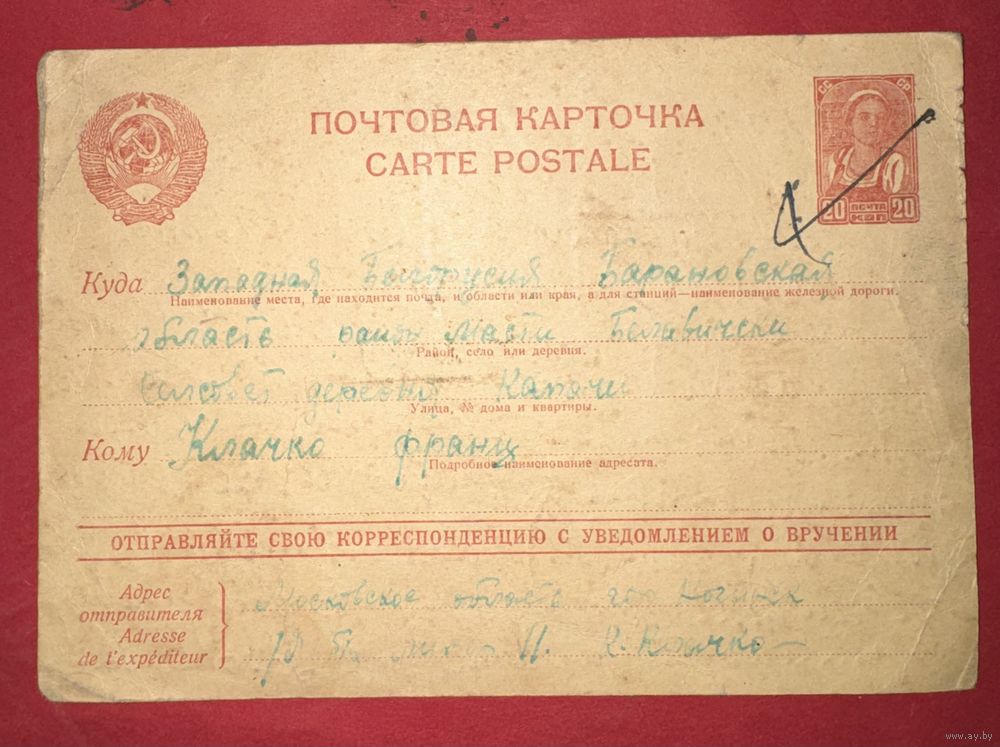 ПОЧТОВАЯ КАРТОЧКА
CARTE POSTALE
СС СР
20 ПОЧТА КОП 20
Куда Западная Барановская
Наименование места, где находится почта, и области или края, а для станций—наименование железной дороги.
область район Масти
Район, село или деревня.
Капачи
Улица, № дома и квартиры.
Кому Клачко франц
Подробное наименование адресата.
ОТПРАВЛЯЙТЕ СВОЮ КОРРЕСПОНДЕНЦИЮ С УВЕДОМЛЕНИЕМ О ВРУЧЕНИИ
Адрес отправителя
Adresse de l'expéditeur
Московское область гор Ногинск
11. К. Клачко
www.ay.by